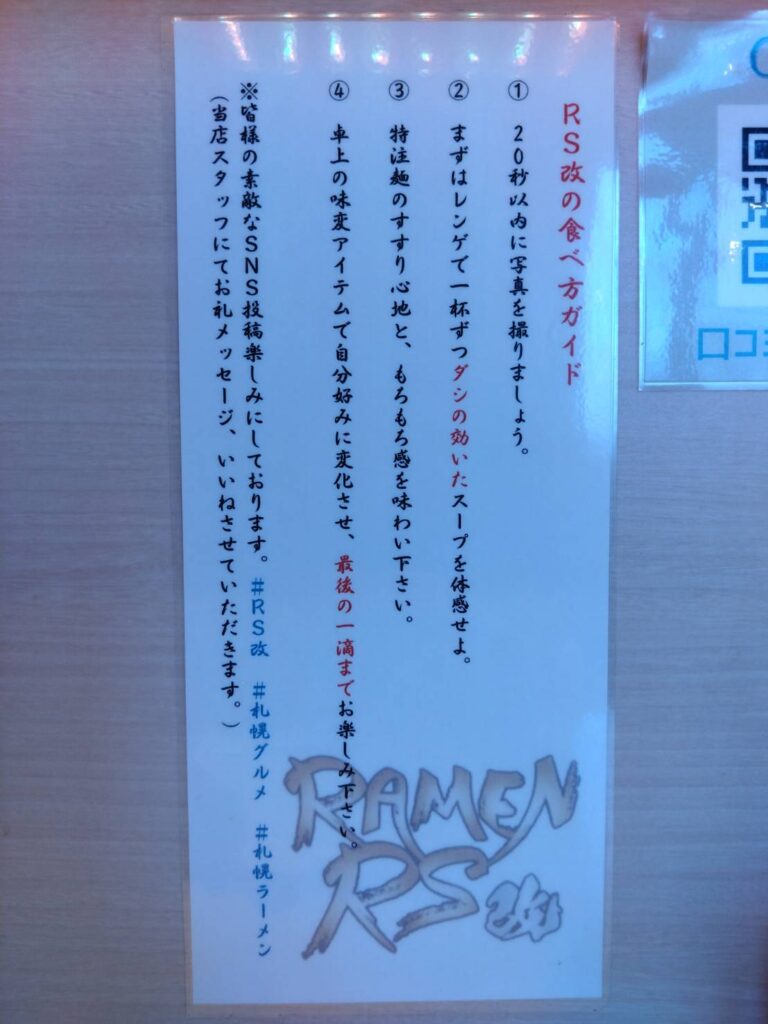 RS改の食べ方ガイド
① 20秒以内に写真を撮りましょう。
② まずはレンゲで一杯ずつダシの効いたスープを体感せよ。
③ 特注麺のすすり心地と、もちもち感を味わい下さい。
④ 卓上の味変アイテムで自分好みに変化させ、最後の一滴までお楽しみ下さい。
※皆様の素敵なSNS投稿楽しみにしております。#RS改 #札幌グルメ #札幌ラーメン
(当店スタッフにてお礼メッセージ、いいねさせていただきます。)
RAMEN
RS改
口コミ